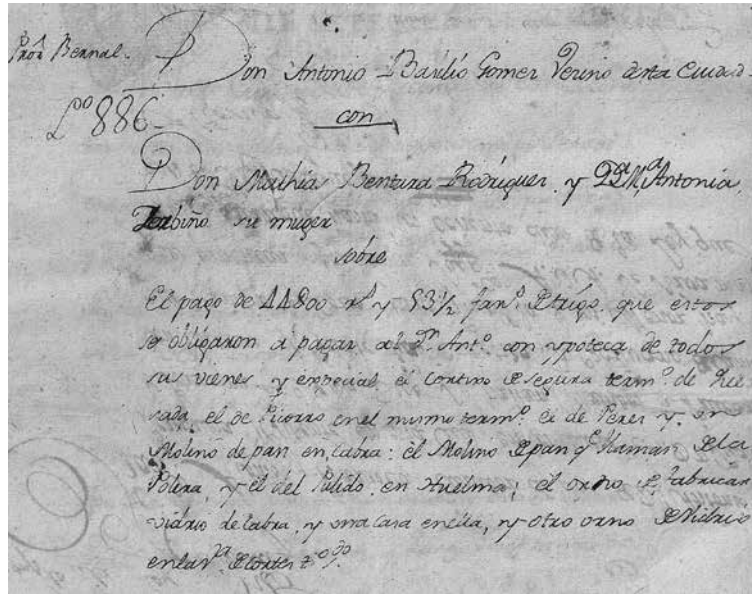 Pror Bernal.
Don Antonio Basilio Gomez Vecino desta Ciudad
Lo 886
con
Don Mathias Bentura Rodriguez, y Da Ma Antonia
Zerbiño su muger
sobre
El pago de 44800 rs y 53 1/2 fans de trigo que estos
se obligaron a pagar al Dn Anto con ypoteca de todos
sus vienes y especial el Cortixo de segura termo de Que
sada, el de en el mismo termo el de Perez y un
Molino de pan en Cabra: el Molino de pan q llaman de la
y el del Pulido en Huelma; el orno de fabricar
vidrio de Cabra, y una casa en ella, y otro orno de Vidrio
en la